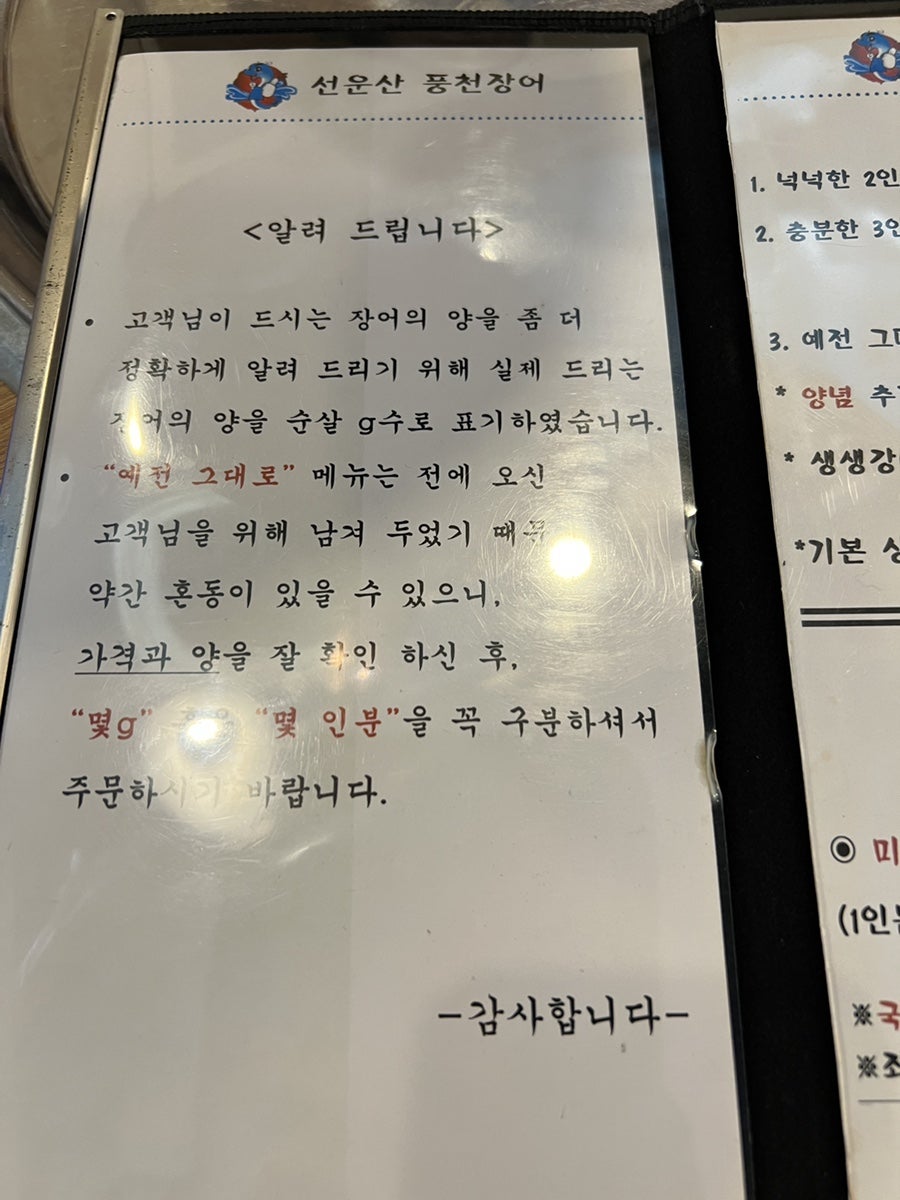 선운산 풍천장어
<알려 드립니다>
• 고객님이 드시는 장어의 양을 좀 더
정확하게 알려 드리기 위해 실제 드리는
장어의 양을 순살 g수로 표기하였습니다.
• “예전 그대로” 메뉴는 전에 오신
고객님을 위해 남겨 두었기 때문
약간 혼동이 있을 수 있으니,
가격과 양을 잘 확인 하신 후,
“몇g” “몇 인분”을 꼭 구분하셔서
주문하시기 바랍니다.
-감사합니다-
1. 넉넉한 2인
2. 충분한 3인
3. 예전 그대
* 양념 추
* 생생강
*기본 상
◉ 미
(1인분
※국
※조